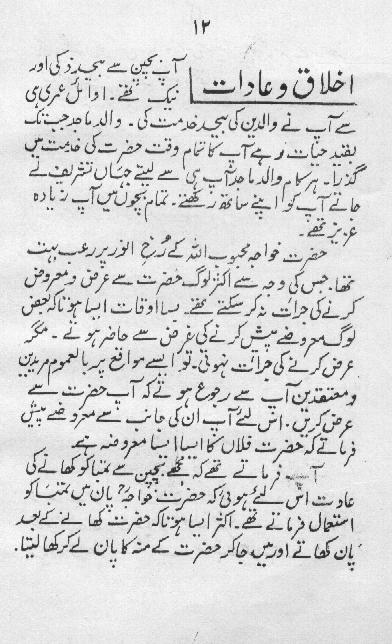 ۱۲
اخلاق و عادات
آپ بچپن سے بیحد ذکی اور
نیک تھے۔ اوائل عمری ہی
سے آپ نے والدین کی بیحد خدمت کی۔ والد ماجد جب تک
بقید حیات رہے آپ کا تمام وقت حضرت کی خدمت میں
گذرا۔ ہر کام والد ماجد آپ ہی سے لیتے جہاں تشریف لے
جاتے آپ کو اپنے ساتھ رکھتے۔ تمام بچوں میں آپ زیادہ
عزیز تھے۔
حضرت خواجہ محبوب اللہ کے رُخِ انور پر رعب بہت
تھا۔ جس کی وجہ سے اکثر لوگ حضرت سے عرض و معروض
کرنے کی جرات نہ کر سکتے تھے۔ بسا اوقات ایسا ہوتا کہ بعض
لوگ معروضے پیش کرنے کی غرض سے حاضر ہوتے۔ مگر
عرض کرنے کی جرات نہوتی۔ تو ایسے مواقع پر بالعموم مریدین
و معتقدین آپ سے رجوع ہوتے کہ آپ حضرت سے
عرض کریں۔ اس لئے آپ ان کی جانب سے معروضے پیش
فرماتے کہ حضرت فلاں کا ایسا ایسا معروضہ ہے
آپ فرماتے تھے کہ مجھے بچپن سے تمباکو کھانے کی
عادت اس لئے ہوئی کہ حضرت خواجہؒ پان میں تمباکو
استعمال فرماتے تھے۔ اکثر ایسا ہوتا کہ حضرت کھانے کے بعد
پان کھاتے اور میں جا کر حضرت کے منہ کا پان لے کر کھا لیتا۔